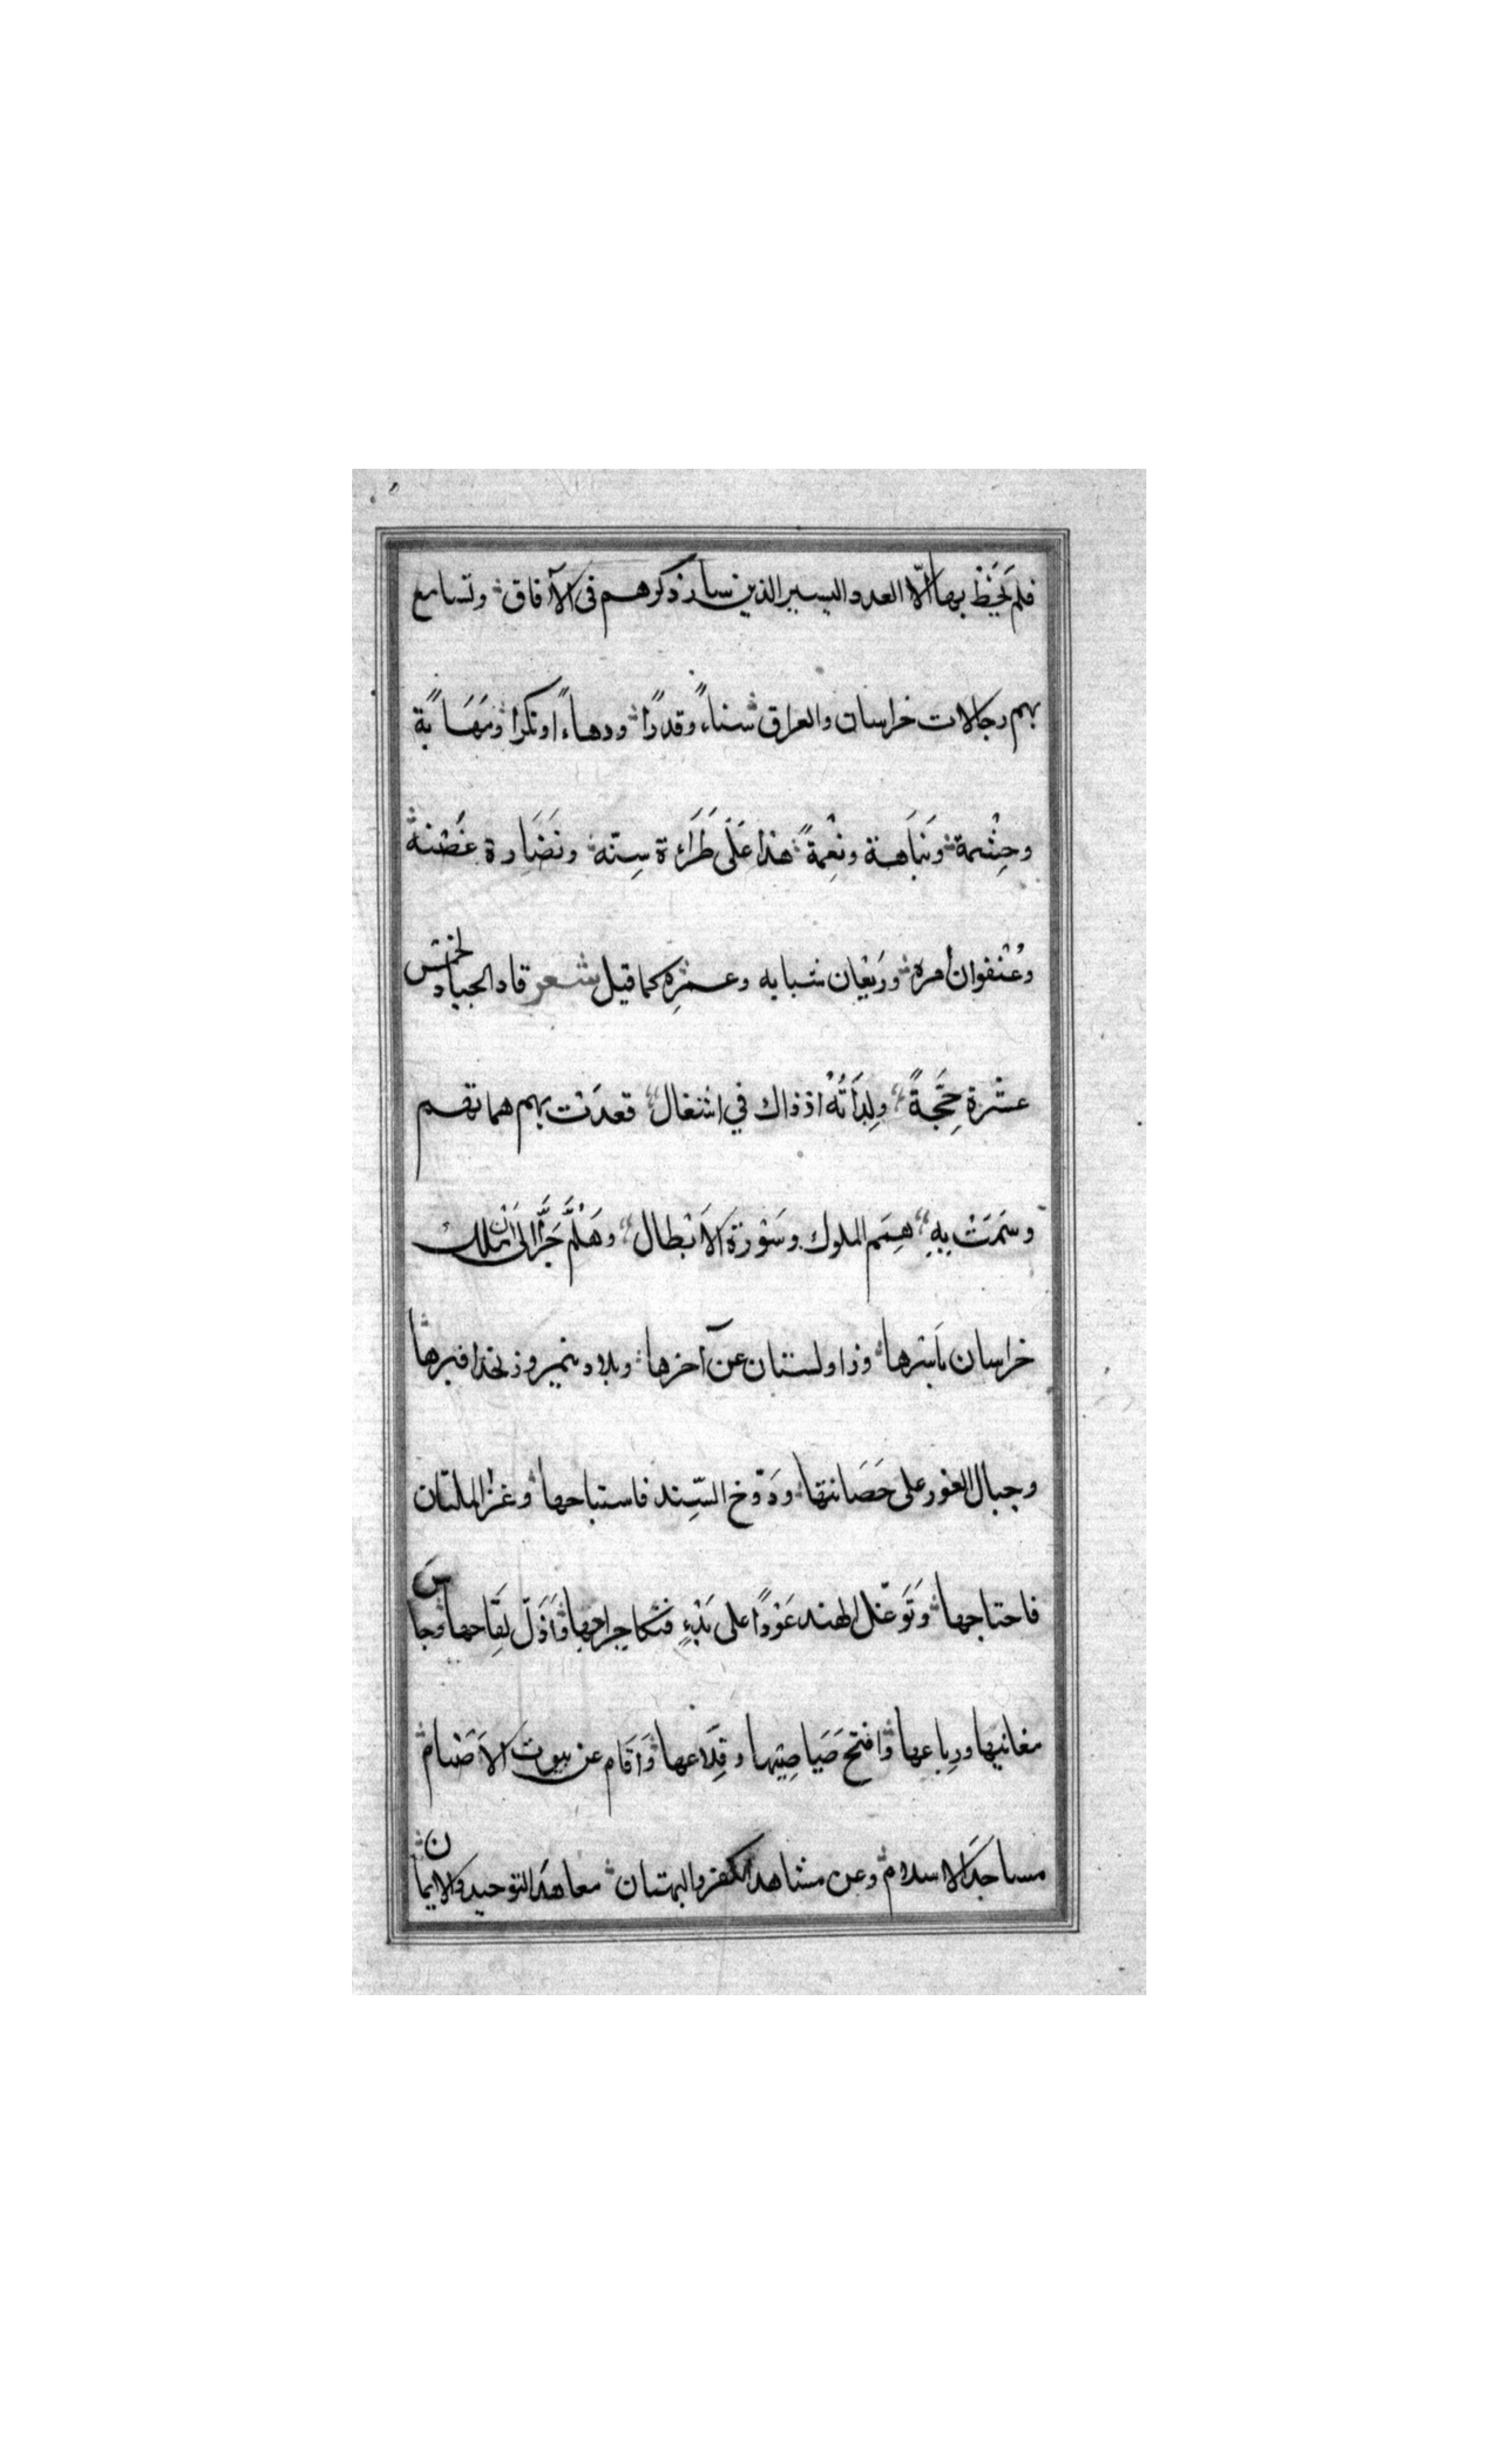 فلم يَحْظ بها الّا العدد اليسير الذين سار ذكرهم فى الآفاق وتسامع
بهم رجالات خراسان والعراق سناءً وقدرًا ودهاءً ونكرا ومَهَابةً
وحِشْمة ونَبَاهة ونِعْمةً هذا عَلَى طَرَاءَة سِنّه ونَضَارة غُصْنه
وعُنْفوان أمره ورَيْعان شبابه وعمره كما قيل شعر قاد الجياد لخمس
عشرة حِجَّةً ولِدَاتُهُ اذ ذاك في اشغال قعدَتْ بهم هماتهم
وسَمَتْ بِهِ هِمَم الملوك وسَوْرَة الأَبْطال وهَلُمَّ جَرًّا الى أن ملك
خراسان بأسرها وزاولستان عن آخرها وبلاد نيمروز بحذافيرها
وجبال الغور على حَصَانتها ودَوّخ السِّند فاستباحها وغزا الملتان
فاحتاجها وتَوَغّل الهند عَوْدًا على بَدْءٍ فنكا جراحها وَاَذَلّ لِقَاحها وجاسَ
مغانيها ورِباعها وافتح صَيَاصِيَها وقِلَاعها وَاَقَام عن بيوت الاَصْنام
مساجدَ الاسلام وعن مشاهد الكفر والبهتان معاهدَ التوحيد والايمان